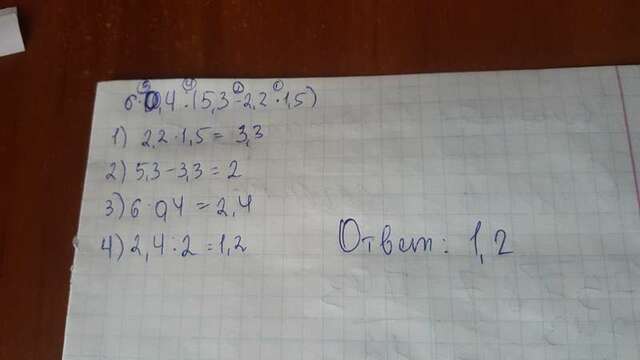 6·0,4:(5,3-2,2·1,5)
1) 2,2·1,5=3,3
2) 5,3-3,3=2
3) 6·0,4=2,4
4) 2,4:2=1,2
Ответ: 1,2